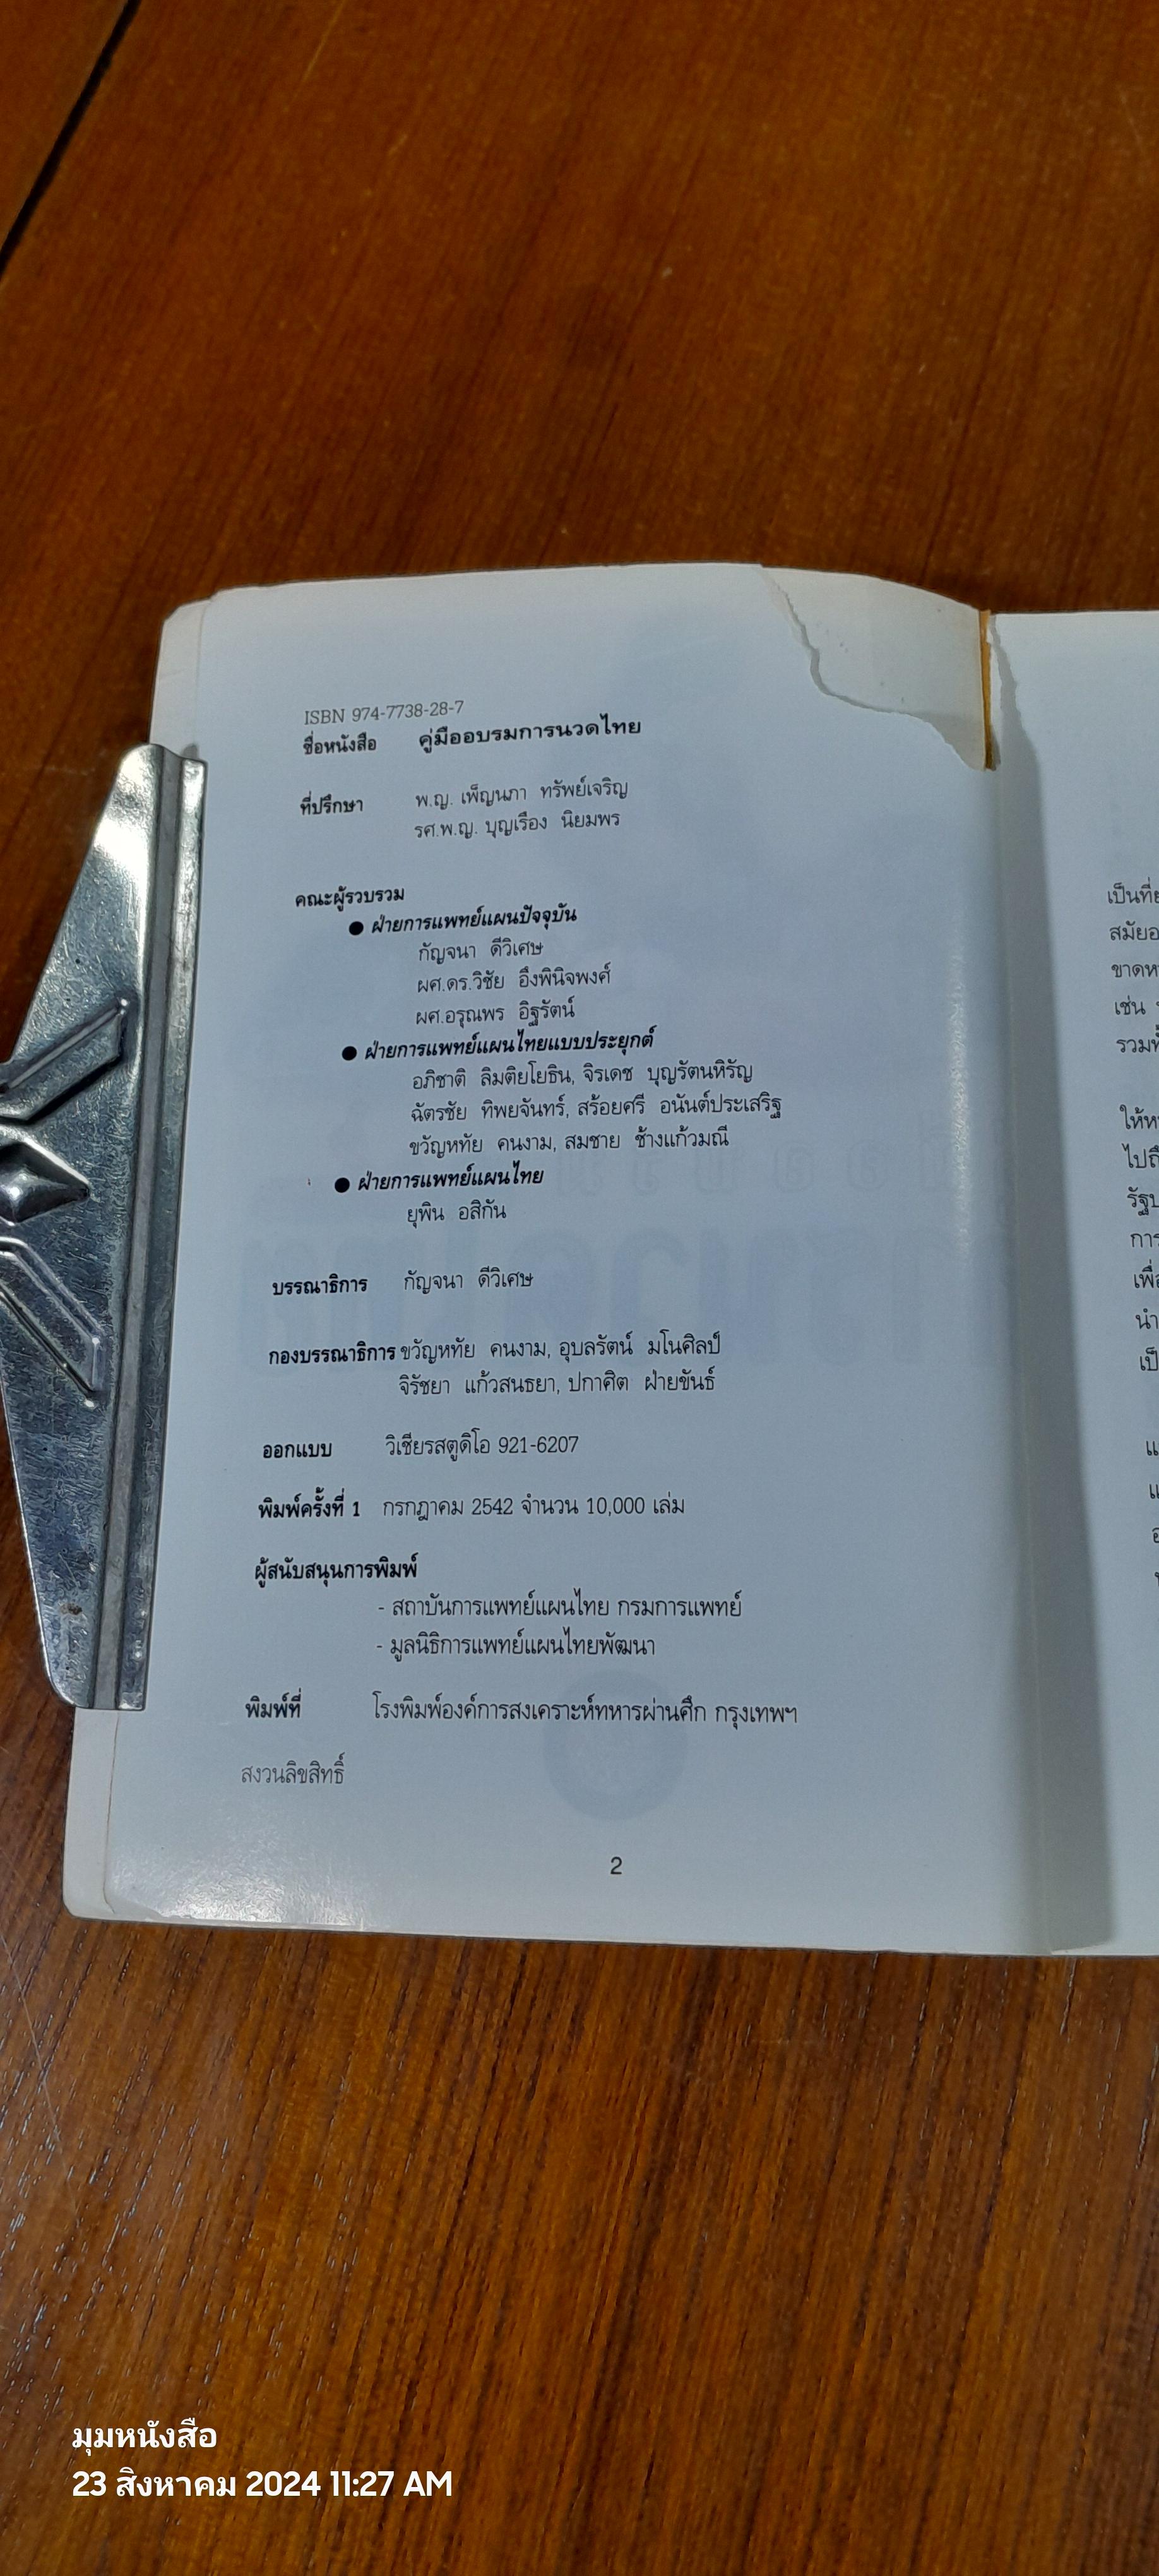 ISBN 974-7738-28-7
ชื่อหนังสือ คู่มืออบรมการนวดไทย
ที่ปรึกษา พ.ญ. เพ็ญนภา ทรัพย์เจริญ
รศ.พ.ญ. บุญเรือง นิยมพร
คณะผู้รวบรวม
● ฝ่ายการแพทย์แผนปัจจุบัน
กัญจนา ดีวิเศษ
ผศ.ดร.วิชัย อึงพินิจพงศ์
ผศ.อรุณพร อิฐรัตน์
● ฝ่ายการแพทย์แผนไทยแบบประยุกต์
อภิชาติ ลิมติยโยธิน, จิรเดช บุญรัตนหิรัญ
ฉัตรชัย ทิพยจันทร์, สร้อยศรี อนันต์ประเสริฐ
ขวัญหทัย คนงาม, สมชาย ช้างแก้วมณี
● ฝ่ายการแพทย์แผนไทย
ยุพิน อสิกัน
บรรณาธิการ กัญจนา ดีวิเศษ
กองบรรณาธิการ ขวัญหทัย คนงาม, อุบลรัตน์ มโนศิลป์
จิรัชยา แก้วสนธยา, ปกาศิต ฝ่ายขันธ์
ออกแบบ วิเชียรสตูดิโอ 921-6207
พิมพ์ครั้งที่ 1 กรกฎาคม 2542 จำนวน 10,000 เล่ม
ผู้สนับสนุนการพิมพ์
- สถาบันการแพทย์แผนไทย กรมการแพทย์
- มูลนิธิการแพทย์แผนไทยพัฒนา
พิมพ์ที่ โรงพิมพ์องค์การสงเคราะห์ทหารผ่านศึก กรุงเทพฯ
สงวนลิขสิทธิ์
2
มุมหนังสือ
23 สิงหาคม 2024 11:27 AM